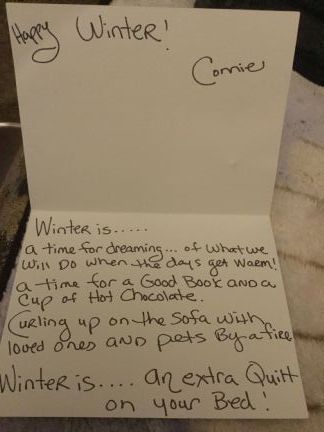 Happy Winter!
Connie
Winter is.....
a time for dreaming... of what we
will Do when the days get warm!
a time for a Good Book and a
Cup of Hot Chocolate.
Curling up on the Sofa with
loved ones AND pets By a fire
Winter is.... an extra Quilt
on your Bed!